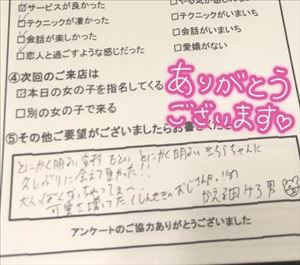 サービスが良かった
テクニックが凄かった
会話が楽しかった
恋人と過ごすような感じだった
テクニックがいまいち
会話がいまいち
愛嬌がない
④次回のご来店は
本日の女の子を指名してくる
別の女の子で来る
ありがとう
ございます♡
⑤その他ご要望がございましたらお書き
とにかく明るい安村 もとい とにかく明るい きららちゃんに
久しぶりに会えて良かった!!
大人っぽくなっちゃってぇ〜
可愛さ増してた(しんせきのおじさん
かえる
男
アンケートのご協力ありがとうございました